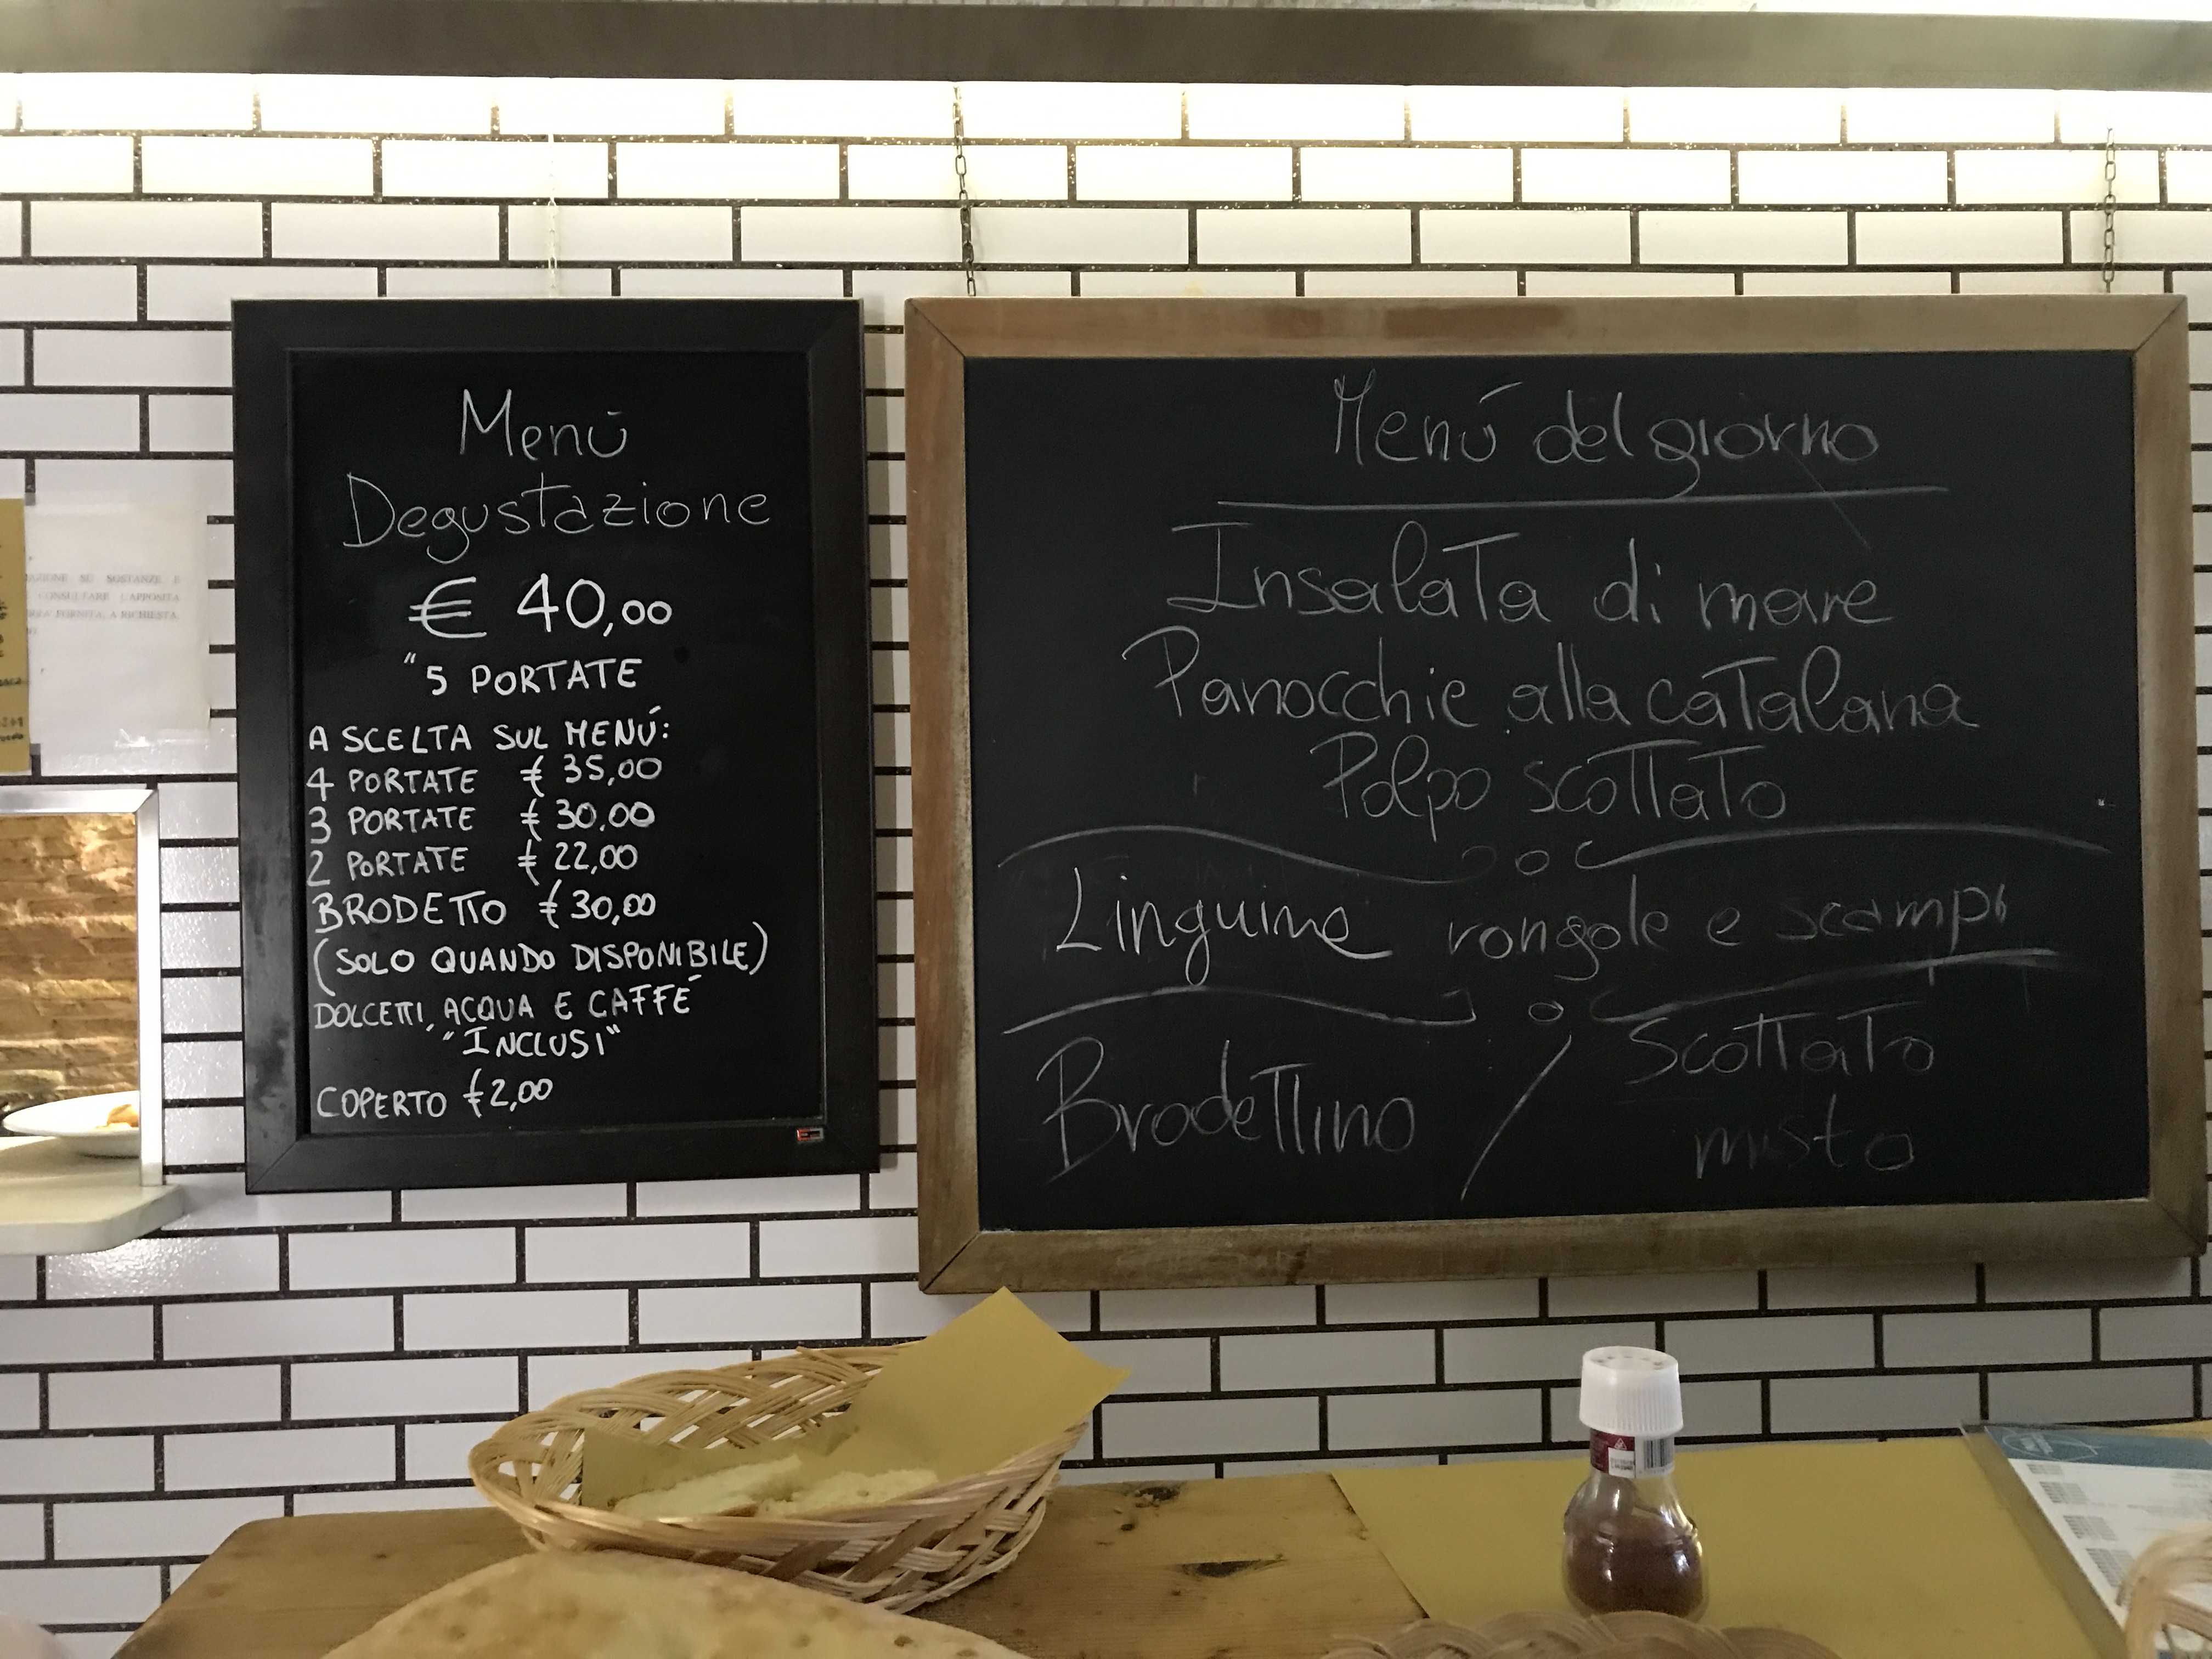 Menú
Degustazione
€ 40,00
"5 PORTATE
A SCELTA SUL MENÚ:
4 PORTATE € 35,00
3 PORTATE € 30,00
2 PORTATE € 22,00
BRODETTO € 30,00
(SOLO QUANDO DISPONIBILE)
DOLCETTI, ACQUA E CAFFÉ
"INCLUSI"
COPERTO € 2,00
Menú del giorno
Insalata di mare
Panocchie alla catalana
Polpo scottato
Linguine vongole e scampi
Brodettino / Scottato
misto
SU SOSTANZE E
CONSULTARE L'APPOSITA
FORNITA, A RICHIESTA,